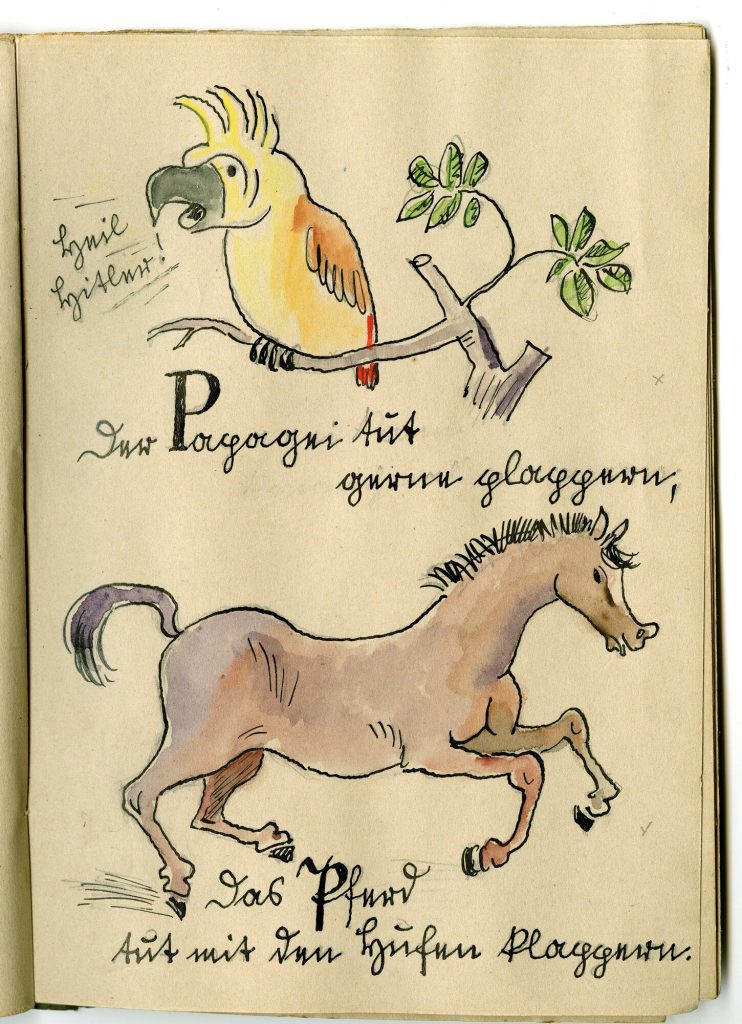 Heil
Hitler!
Der Papagei tut
gerne plappern,
Das Pferd
tut mit den Hufen klappern.